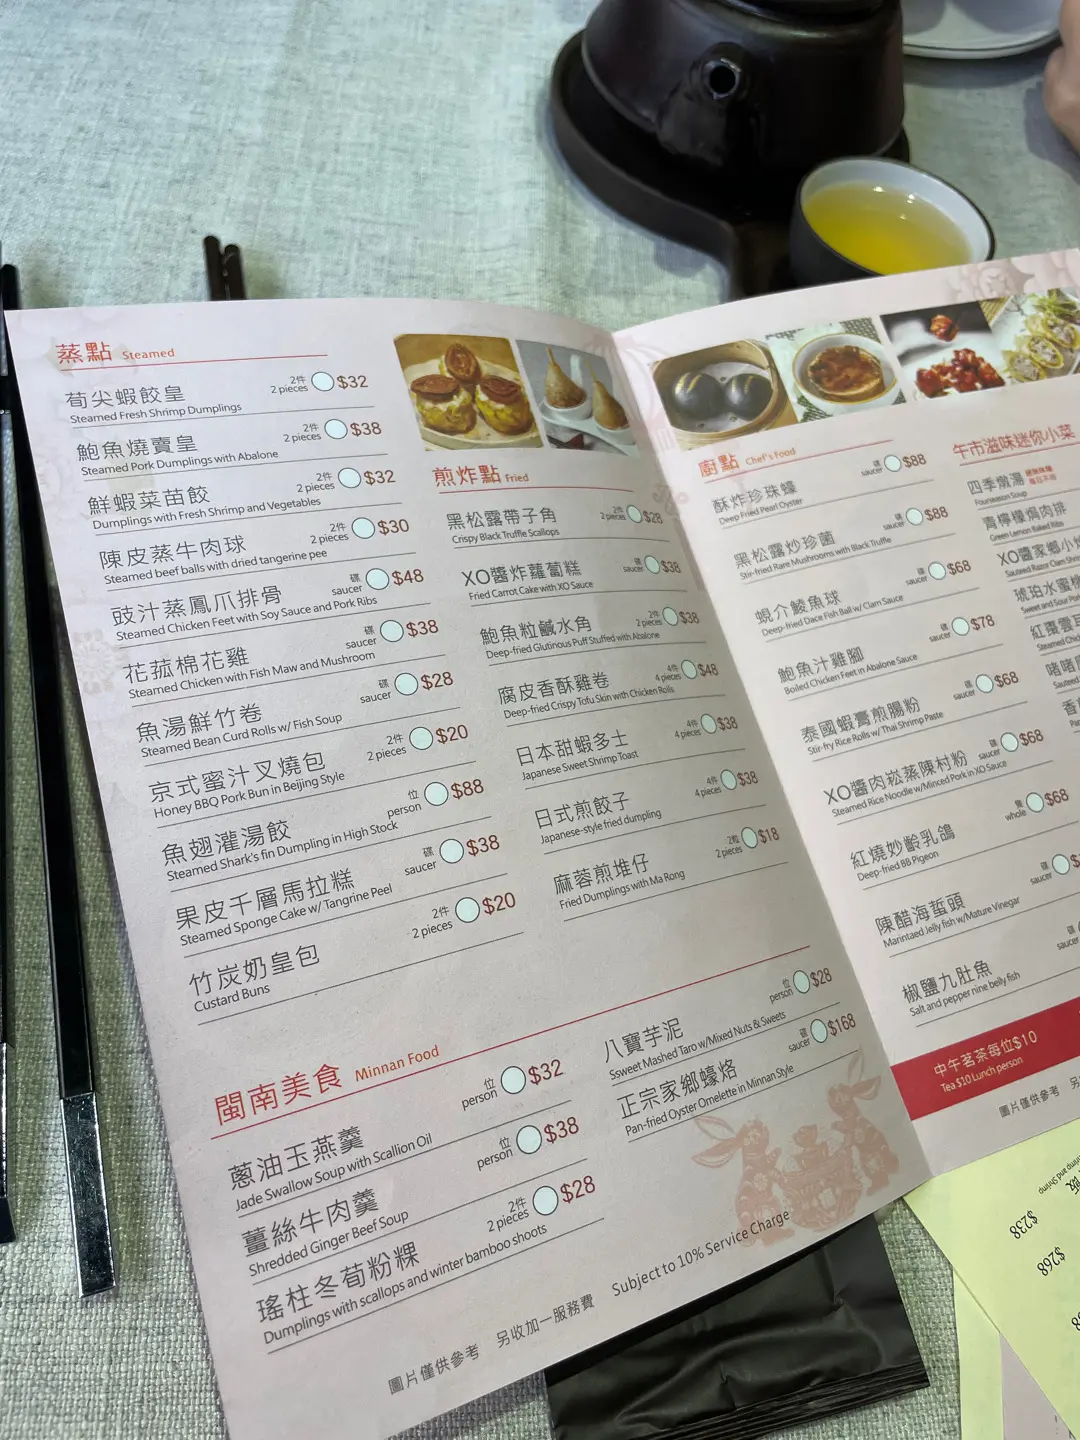 蒸點 Steamed
荀尖蝦餃皇 2件 $32
Steamed Fresh Shrimp Dumplings 2 pieces
鮑魚燒賣皇 2件 $38
Steamed Pork Dumplings with Abalone 2 pieces
鮮蝦菜苗餃 2件 $32
Dumplings with Fresh Shrimp and Vegetables 2 pieces
陳皮蒸牛肉球 2件 $30
Steamed beef balls with dried tangerine pee 2 pieces
豉汁蒸鳳爪排骨 碟 $48
Steamed Chicken Feet with Soy Sauce and Pork Ribs saucer
花菰棉花雞 碟 $38
Steamed Chicken with Fish Maw and Mushroom saucer
魚湯鮮竹卷 碟 $28
Steamed Bean Curd Rolls w/ Fish Soup saucer
京式蜜汁叉燒包 2件 $20
Honey BBQ Pork Bun in Beijing Style 2 pieces
魚翅灌湯餃 位 $88
Steamed Shark's fin Dumpling in High Stock person
果皮千層馬拉糕 碟 $38
Steamed Sponge Cake w/ Tangrine Peel saucer
竹炭奶皇包 2件 $20
Custard Buns 2 pieces
煎炸點 Fried
黑松露帶子角 2件 $28
Crispy Black Truffle Scallops 2 pieces
XO醬炸蘿蔔糕 碟 $38
Fried Carrot Cake with XO Sauce saucer
鮑魚粒鹹水角 2件 $38
Deep-fried Glutinous Puff Stuffed with Abalone 2 pieces
腐皮香酥雞卷 4件 $48
Deep-fried Crispy Tofu Skin with Chicken Rolls 4 pieces
日本甜蝦多士 4件 $38
Japanese Sweet Shrimp Toast 4 pieces
日式煎餃子 4件 $38
Japanese-style fried dumpling 4 pieces
麻蓉煎堆仔 2粒 $18
Fried Dumplings with Ma Rong 2 pieces
閩南美食 Minnan Food
蔥油玉燕羹 位 $32
Jade Swallow Soup with Scallion Oil person
薑絲牛肉羹 位 $38
Shredded Ginger Beef Soup person
瑤柱冬荀粉粿 2件 $28
Dumplings with scallops and winter bamboo shoots 2 pieces
八寶芋泥 位 $28
Ssweet Mashed Taro w/Mixed Nuts & Sweets person
正宗家鄉蠔烙 碟 $168
Pan-fried Oyster Omelette in Minnan Style saucer
圖片僅供參考 另收加一服務費 Subject to 10% Service Charge
廚點 Chef's Food
酥炸珍珠蠔 碟 $88
Deep Fried Pearl Oyster saucer
黑松露炒珍菌 碟 $88
Stir-fried Rare Mushrooms with Black Truffle saucer
蜆介鯪魚球 碟 $68
Deep-fried Dace Fish Ball w/ Clam Sauce saucer
鮑魚汁雞腳 碟 $78
Boiled Chicken Feet in Abalone Sauce saucer
泰國蝦膏煎腸粉 碟 $68
Stir-fry Rice Rolls w/ Thai Shrimp Paste saucer
XO醬肉崧蒸陳村粉 碟 $68
Steamed Rice Noodle w/Minced Pork in XO Sauce saucer
紅燒妙齡乳鴿 隻 $68
Deep-fried BB Pigeon whole
陳醋海蜇頭 碟
Marintaed Jelly fish w/Mature Vinegar saucer
椒鹽九肚魚 碟
Salt and pepper nine belly fish saucer
午市滋味迷你小菜
四季燉湯
Fourseason Soup
青檸檬焗肉排
Green Lemon Baked Ribs
XO醬家鄉小
Sauteed Razor Clam
琥珀水蜜
Sweet and Sour
紅棗雲
Steamed
啫啫
Sauteed
香
中午茗茶每位$10
Tea $10 Lunch person
圖片僅供參考
$238
$268